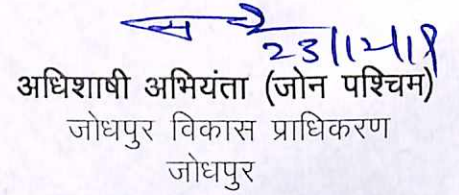 23/12/19
अधिशाषी अभियंता (जोन पश्चिम)
जोधपुर विकास प्राधिकरण
जोधपुर